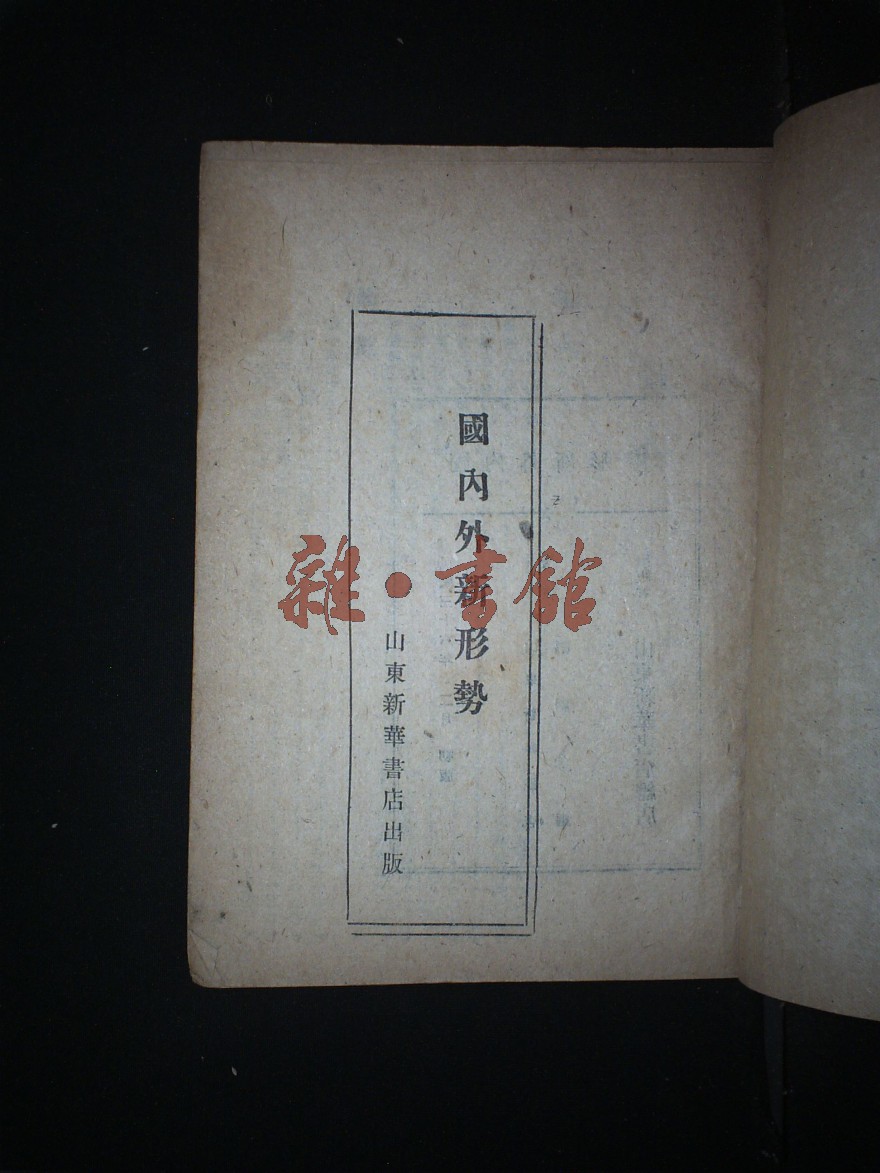 國內外新形勢
山東新華書店出版
雜·書館